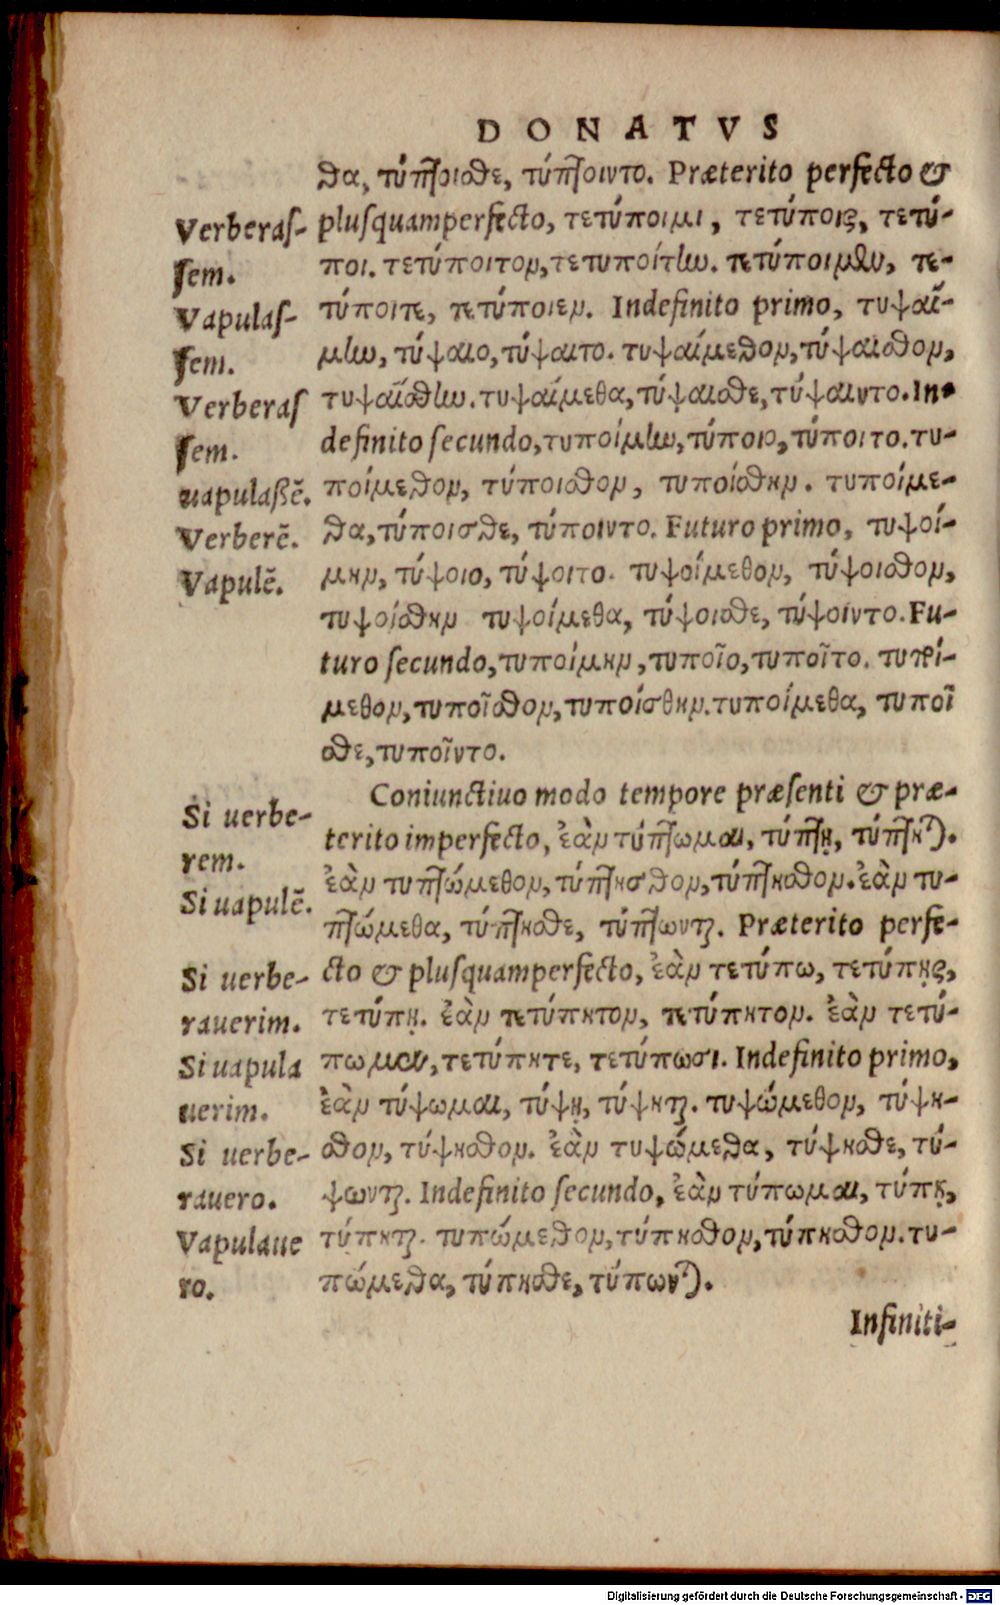 DONATVS
θα, τύπτοισθε, τύπτοιντο. Præterito perfecto &
plusquamperfecto, τετύποιμι, τετύποις, τετύ-
ποι. τετύποιτον, τετυποίτην. τετύποιμεν, τε-
τύποιτε, τετύποιεν. Indefinito primo, τυψαί-
μην, τύψαιο, τύψαιτο. τυψαίμεθον, τύψαισθον,
τυψαίσθην. τυψαίμεθα, τύψαισθε, τύψαιντο. In-
definito secundo, τυποίμην, τύποιο, τύποιτο. τυ-
ποίμεθον, τύποισθον, τυποίσθην. τυποίμε-
θα, τύποισθε, τύποιντο. Futuro primo, τυψοί-
μην, τύψοιο, τύψοιτο. τυψοίμεθον, τύψοισθον,
τυψοίσθην τυψοίμεθα, τύψοισθε, τύψοιντο. Fu-
turo secundo, τυποίμην, τυποῖο, τυποῖτο. τυποί-
μεθον, τυποῖσθον, τυποίσθην. τυποίμεθα, τυποῖ
σθε, τυποῖντο.
Coniunctiuo modo tempore præsenti & præ-
terito imperfecto, ἐὰν τύπτωμαι, τύπτῃ, τύπτηται.
ἐὰν τυπτώμεθον, τύπτησθον, τύπτησθον. ἐὰν τυ-
πτώμεθα, τύπτησθε, τύπτωνται. Præterito perfe-
cto & plusquamperfecto, ἐὰν τετύπω, τετύπῃς,
τετύπῃ. ἐὰν τετύπητον, τετύπητον. ἐὰν τετύ-
πωμεν, τετύπητε, τετύπωσι. Indefinito primo,
ἐὰν τύψωμαι, τύψῃ, τύψηται. τυψώμεθον, τύψη-
σθον, τύψησθον. ἐὰν τυψώμεθα, τύψησθε, τύ-
ψωνται. Indefinito secundo, ἐὰν τύπωμαι, τύπῃ,
τύπηται. τυπώμεθον, τύπησθον, τύπησθον. τυ-
πώμεθα, τύπησθε, τύπωνται.
Infiniti-
Verberas-
sem.
Vapulas-
sem.
Verberas
sem.
uapulaßẽ.
Verberẽ.
Vapulẽ.
Si uerbe-
rem.
Si uapulẽ.
Si uerbe-
rauerim.
Si uapula
uerim.
Si uerbe-
rauero.
Vapulaue
ro.
Digitalisierung gefördert durch die Deutsche Forschungsgemeinschaft - DFG